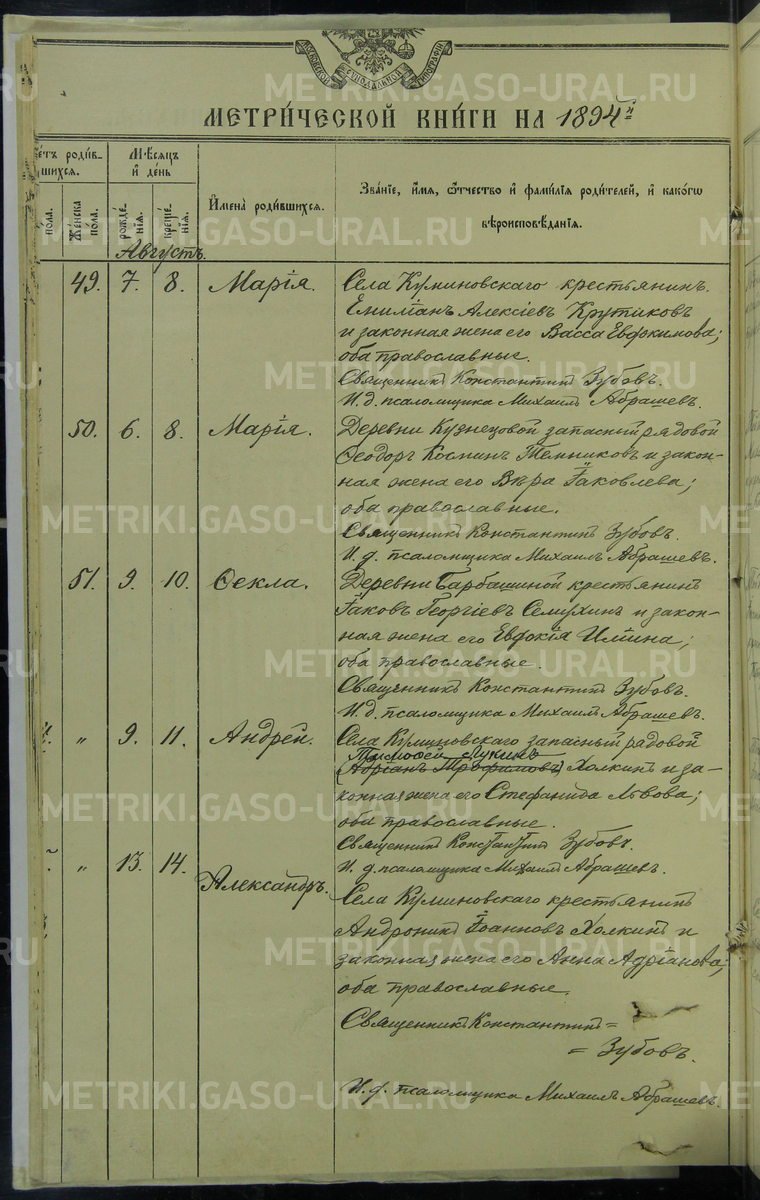 МОСКОВСКОЙ СѴНОДАЛЬНОЙ ТИПОГРАФІИ
МЕТРИ́ЧЕСКОЙ КНИ́ГИ НА 1894й
етъ роди́в-
шихся.
М҃ѣсяцъ
и҆ де́нь
пола.
Же́нска
пола.
рожде́-
нїѧ.
креще́-
нїѧ.
И҆мена̀ роди́вшихся.
Зва́нїе, и҆́мѧ, ѻ҆́тчество и҆ фами́лїѧ роди́телей, и҆ како́гѡ
вѣроисповѣ́данїѧ.
Августъ
49. 7. 8. Марія. Села Куминовскаго крестьянинъ
Емиліанъ Алексіевъ Крутиковъ
и законная жена его Васса Евдокимова;
оба православные.
Священникъ Константинъ Зубовъ.
И. д. псаломщика Михаилъ Абрашевъ.
50. 6. 8. Марія. Деревни Кузнецовой запасный рядовой
Ѳеодоръ Космин Темниковъ и закон-
ная жена его Вѣра Іаковлева;
оба православные.
Священникъ Константинъ Зубовъ.
И. д. псаломщика Михаилъ Абрашевъ.
51. 9. 10. Ѳекла. Деревни Барбашиной крестьянинъ
Іаковъ Георгіевъ Семухинъ и закон-
ная жена его Евдокія Илиина;
оба православные.
Священникъ Константинъ Зубовъ.
И. д. псаломщика Михаилъ Абрашевъ.
„ 9. 11. Андрей. Села Куминовскаго запасный рядовой
Тимофей Лукинъ
(Адріанъ Трофимовъ) Холкинъ и за-
конная жена его Стефанида Львова;
оба православные.
Священникъ Константинъ Зубовъ.
„ 13. 14. И. д. псаломщика Михаилъ Абрашевъ.
Александръ. Села Куминовскаго крестьянинъ
Андроникъ Іоанновъ Холкинъ и
законная жена его Анна Адріанова;
оба православные.
Священникъ Константинъ =
= Зубовъ.
И. д. псаломщика Михаилъ Абрашевъ.
METRIKI.GASO-URAL.RU